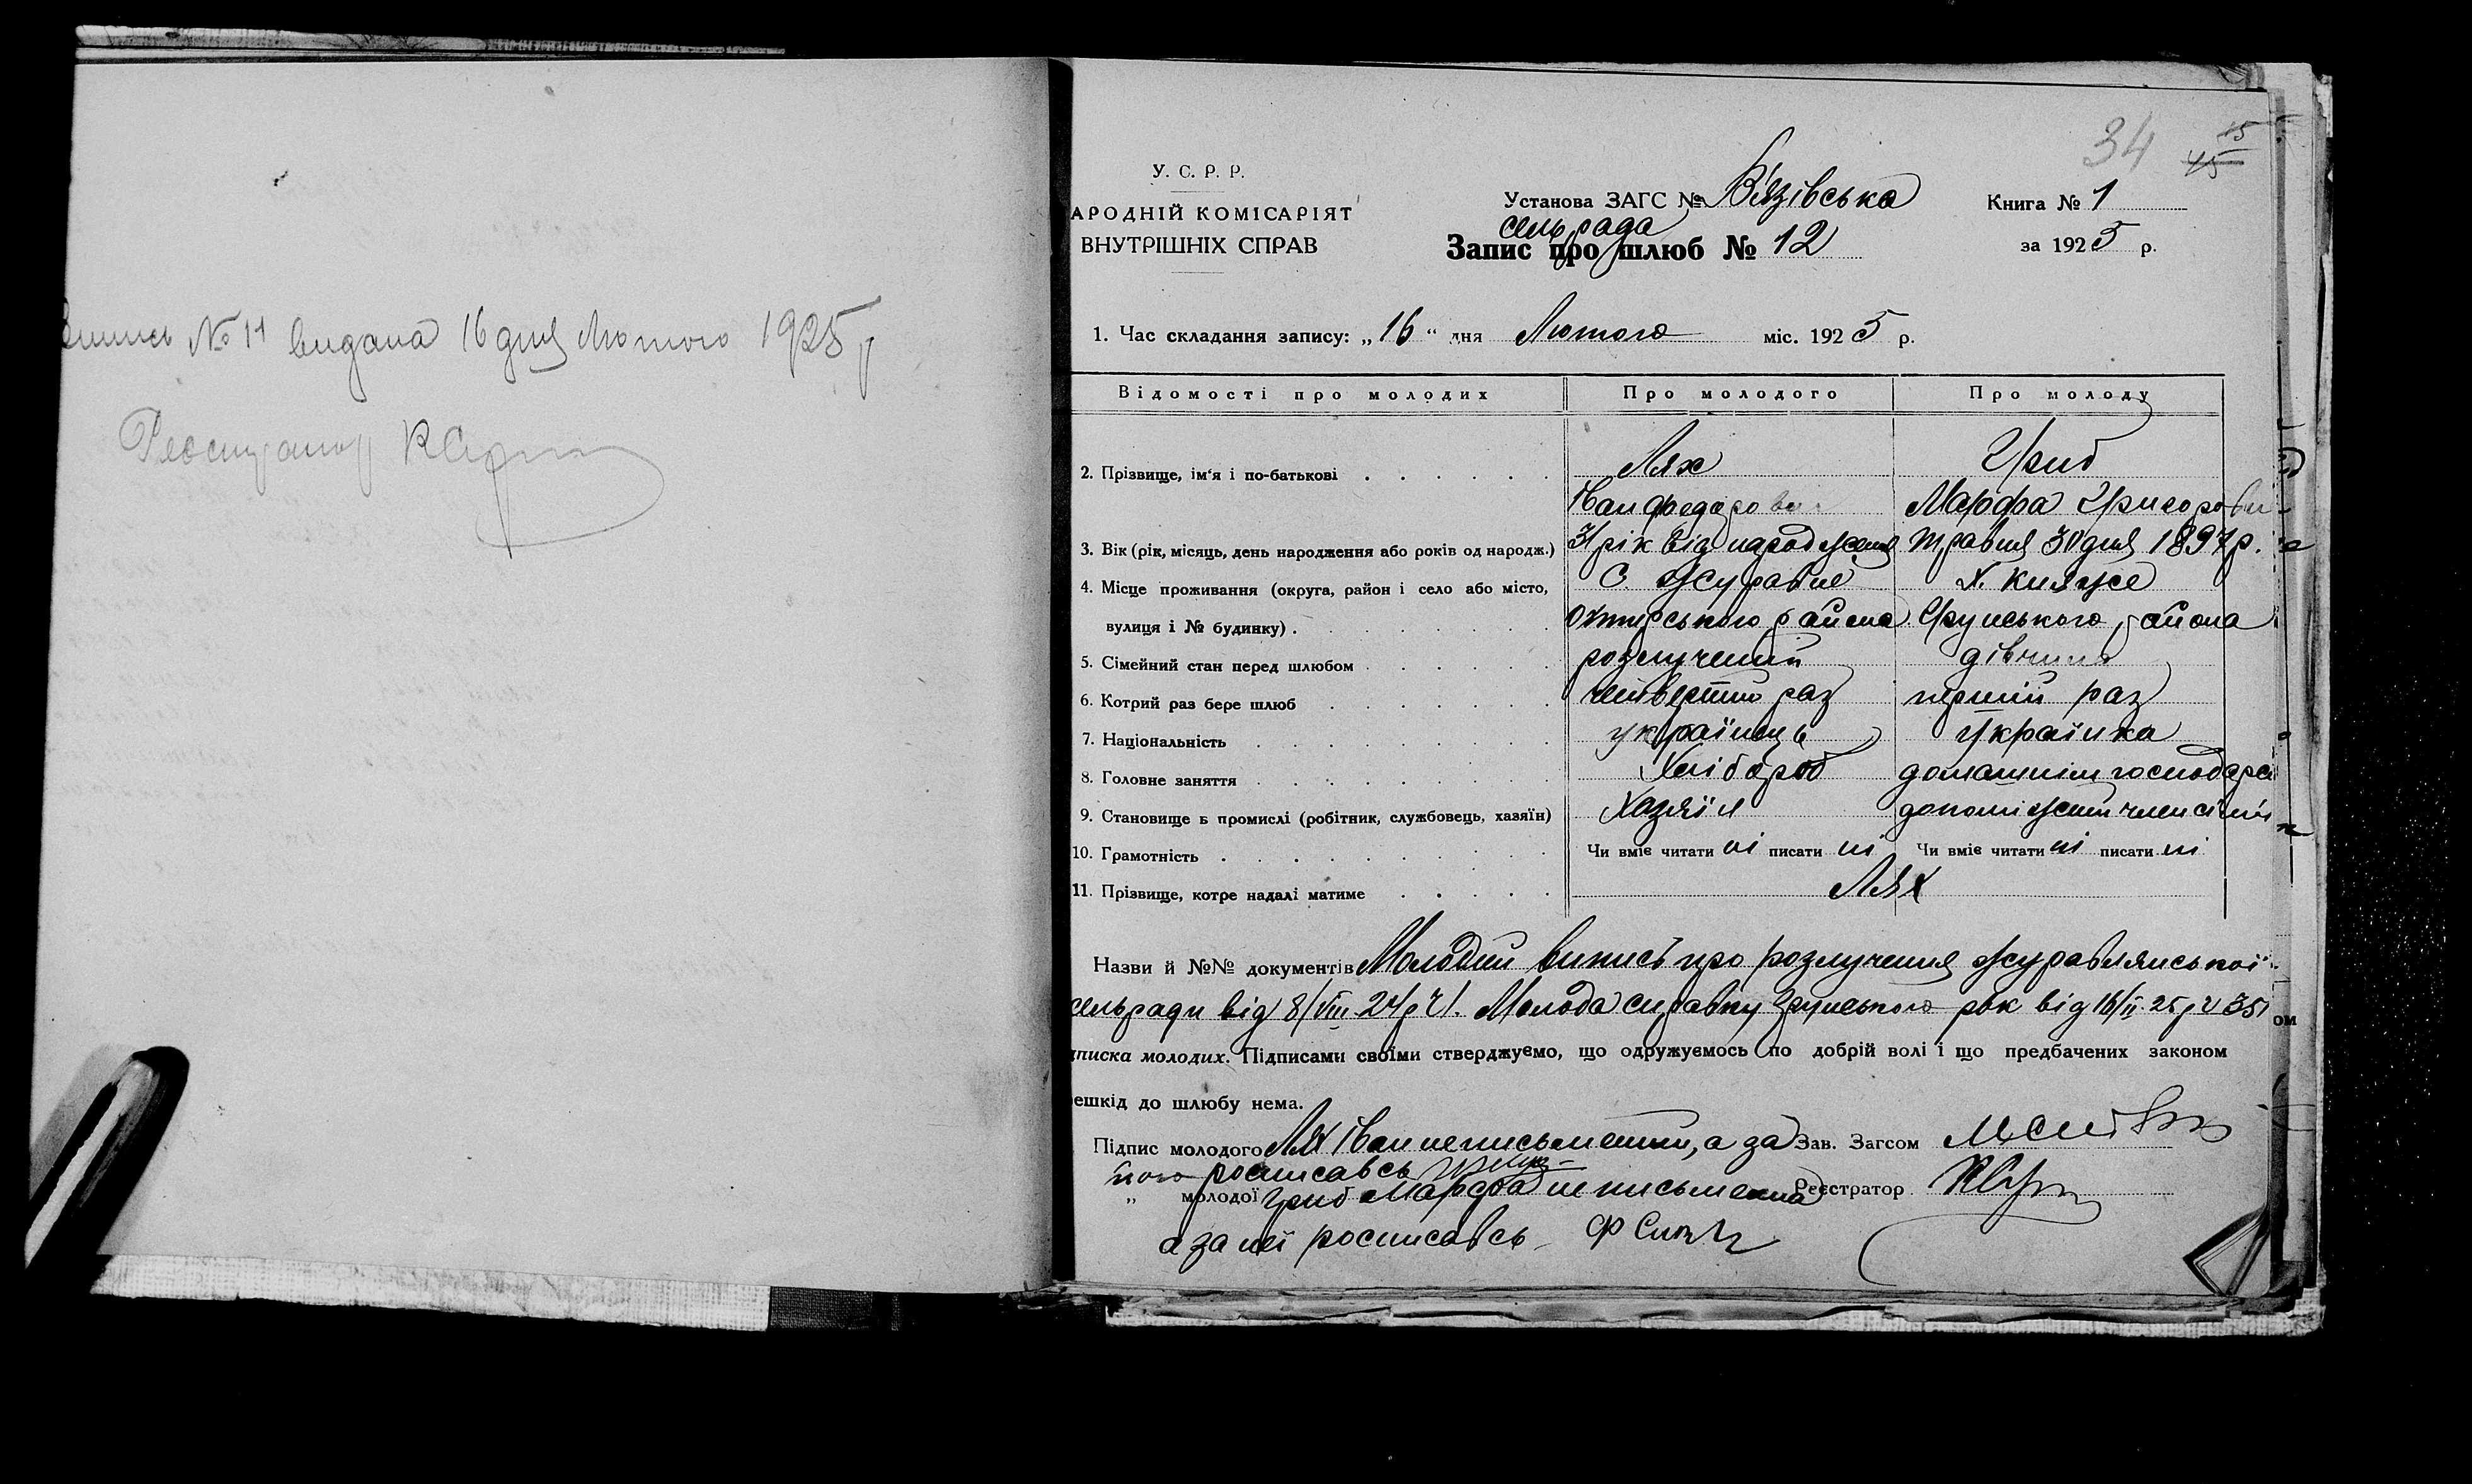 випись № 11 видана 16 дня Лютого 1925 р
Реєстратор
34
15
45
У. С. Р. Р.
АРОДНІЙ КОМІСАРІЯТ
ВНУТРІШНІХ СПРАВ
Установа ЗАГС № Вязівська
сельрада
Запис про шлюб № 12
Книга № 1
за 1925 р.
1. Час складання запису: „16“ дня Лютого міс. 1925 р.
Відомості про молодих Про молодого Про молоду
2. Прізвище, ім‘я і по-батькові Лях Гриб
Іван Федорови Марфа Григорови
3. Вік (рік, місяць, день народження або років од народж.) 31 рік від народження травня 30 дня 1897 р.
4. Місце проживання (округа, район і село або місто, С. Журавне Х. Княже
вулиця і № будинку) Охтирського района Грунського района
5. Сімейний стан перед шлюбом розлучений дівчина
6. Котрий раз бере шлюб четвертий раз перший раз
7. Національність українець Українка
8. Головне заняття Хлібороб домашнім господарст
9. Становище в промислі (робітник, службовець, хазяїн) Хазяїн допоміжний член сімї
10. Грамотність Чи вміє читати ні писати ні Чи вміє читати ні писати ні
11. Прізвище, котре надалі матиме Лях
Назви й №№ документів Молодий випись про розлучення Журавлянської
сельради від 8/VIII-24 р Ч1. Молода справку Грунського рвк від 16/II-25 р ч 351
писка молодих. Підписами своїми стверджуємо, що одружуємось по добрій волі і що предбачених законом
ешкід до шлюбу нема.
Підпис молодого Лях Іван неписьменний, а за Зав. Загсом
його росписавсь
„ молодої Гриб Марфа не письменна Реєстратор
а за неї росписавсь